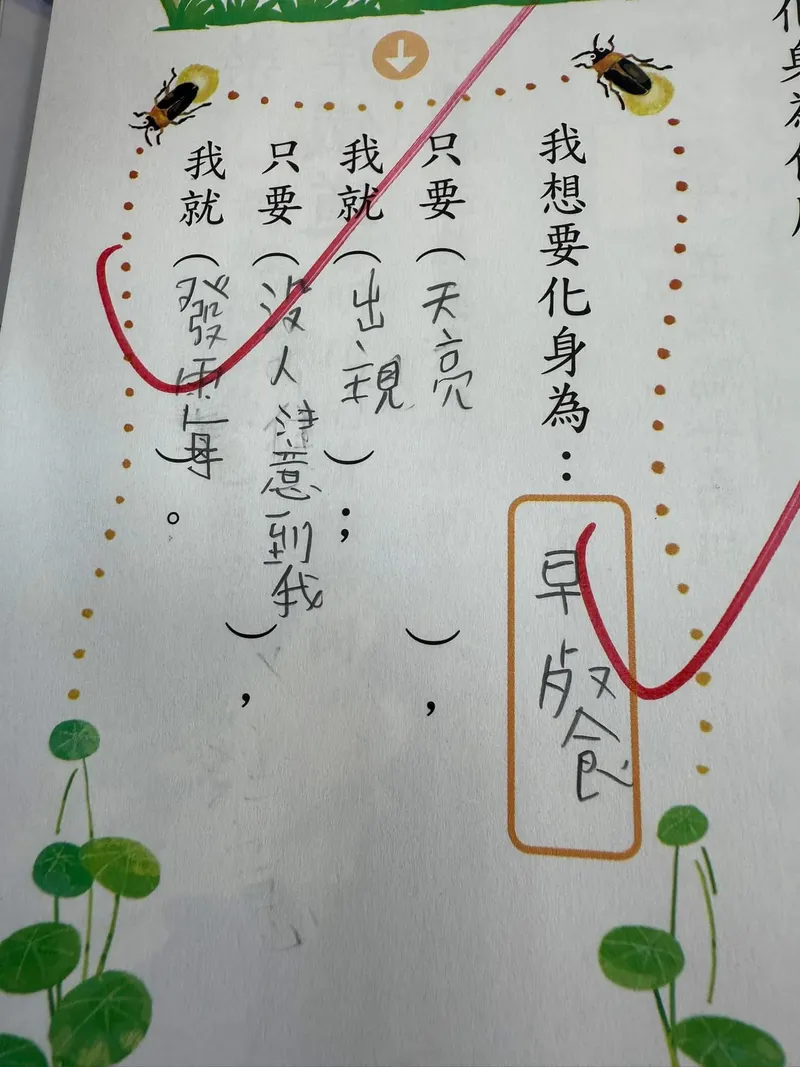 化身為什
我想要化身為：早餐
只要（天亮），
我就（出現）；
只要（沒人注意到我），
我就（發霉）。